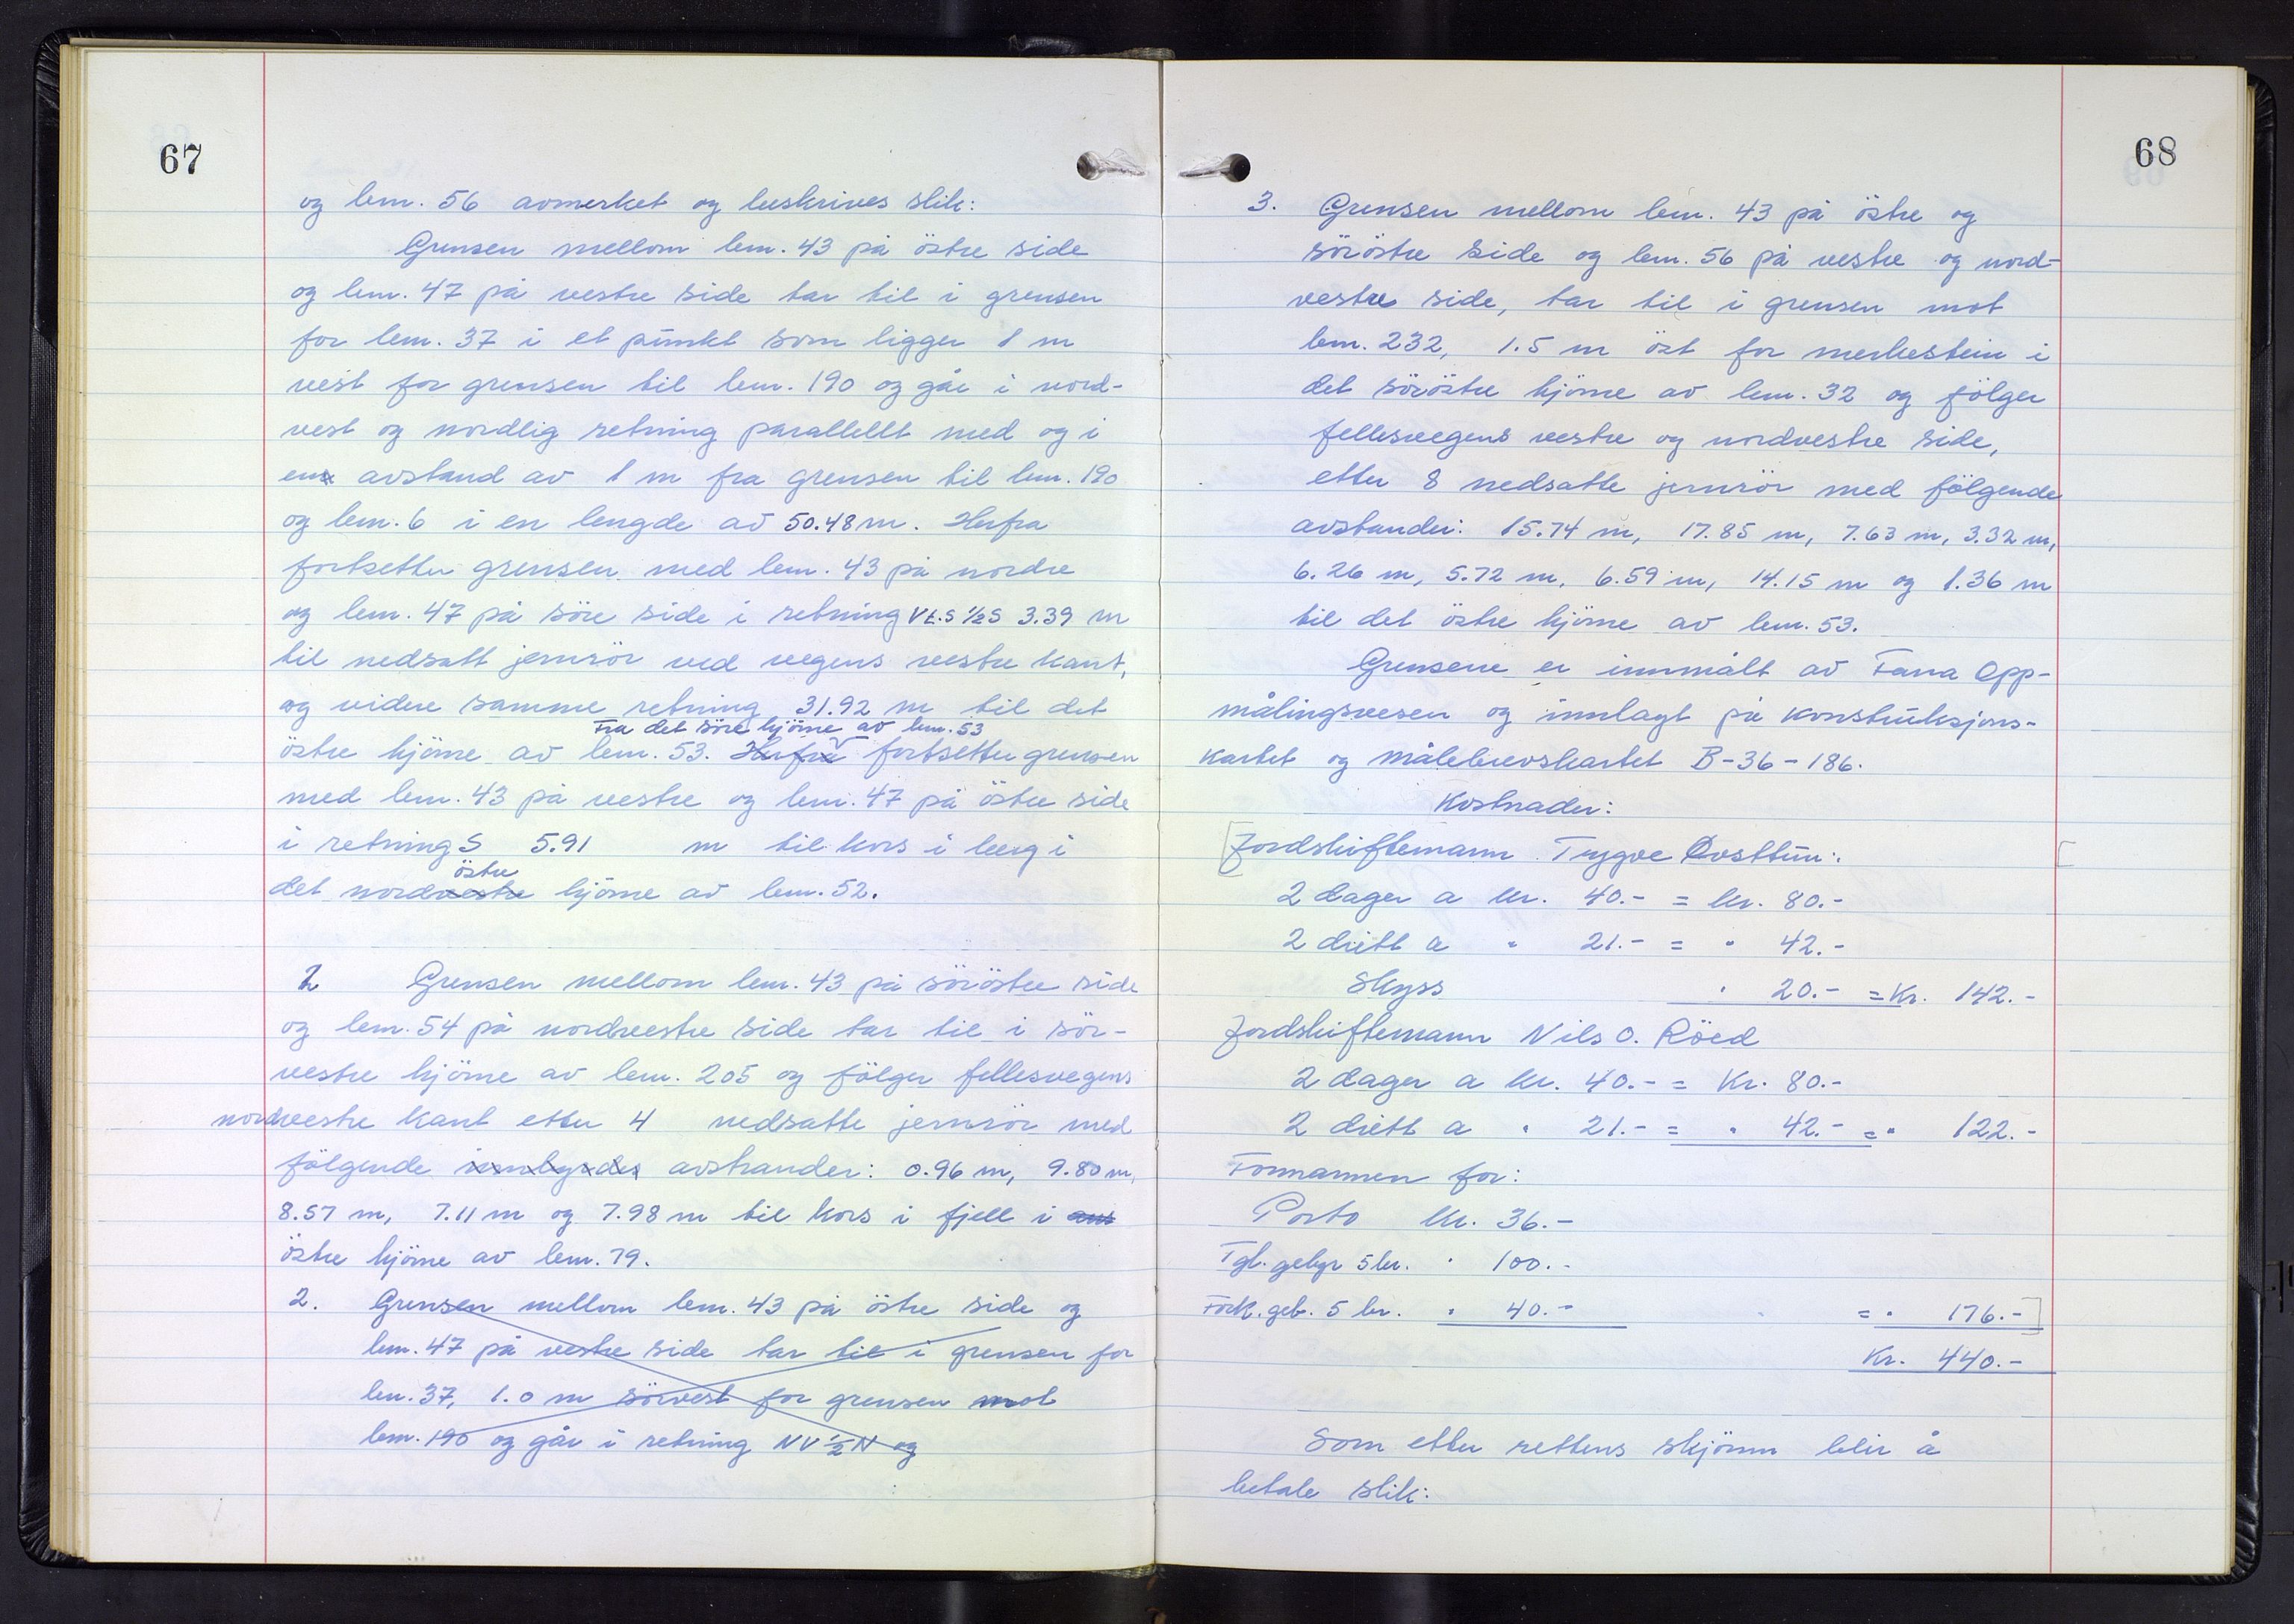 67
og bnr. 56 avmerket og beskrives slik:
Grensen mellom bnr. 43 på östre side
og bnr. 47 på vestre side tar til i grensen
for bnr. 37 i et punkt som ligger 1 m
vest for grensen til bnr. 190 og går i nord-
vest og nordlig retning parallellt med og i
en avstand av 1 m fra grensen til bnr. 190
og bnr. 6 i en lengde av 50.48 m. Herfra
fortsetter grensen med bnr. 43 på nordre
og bnr. 47 på söre side i retning Vt.S ½S 3.39 m
til nedsatt jernrör ved vegens vestre kant,
og videre samme retning 31.92 m til det
Fra det söre hjörne av bnr. 53
östre hjörne av bnr. 53. Herfra fortsetter grensen
med bnr. 43 på vestre og bnr. 47 på östre side
i retning S 5.91 m til kors i berg i
östre
det nordvestre hjörne av bnr. 52.
2 Grensen mellom bnr. 43 på söröstre side
og bnr. 54 på nordvestre side tar til i sör-
vestre hjörne av bnr. 205 og fölger fellesvegens
nordvestre kant etter 4 nedsatte jernrör med
fölgende innbyrdes avstander: 0.96 m, 9.80 m,
8.57 m, 7.11 m og 7.98 m til kors i fjell i
östre hjörne av bnr. 79.
2. Grensen mellom bnr. 43 på östre side og
bnr. 47 på vestre side tar til i grensen for
bnr. 37, 1.0 m sörvest for grensen mot
bnr. 190 og går i retning NV ½ N og
68
3. Grensen mellom bnr. 43 på östre og
söröstre side og bnr. 56 på vestre og nord-
vestre side, tar til i grensen mot
bnr. 232, 1.5 m öst for merkestein i
det söröstre hjörne av bnr. 32 og fölger
fellesvegens vestre og nordvestre side,
etter 8 nedsatte jernrör med fölgende
avstander: 15.74 m, 17.85 m, 7.63 m, 3.32 m,
6.26 m, 5.72 m, 6.59 m, 14.15 m og 1.36 m
til det östre hjörne av bnr. 53.
Grensene er innmålt av Fana Opp-
målingsvesen og innlagt på konstruksjons-
kartet og målebrevskartet B-36-186.
Kostnader:
[Jordskiftemann Trygve Øvsttun:
2 dager a kr. 40.- = kr. 80.-
2 diett a " 21.- = " 42.-
Skyss " 20.- = Kr. 142.-
Jordskiftemann Nils O. Röed
2 dager a kr. 40.- = Kr. 80.-
2 diett a " 21.- = " 42.- = " 122.-
Formannen for:
Porto kr. 36.-
Tgl. gebyr 5 br. " 100.-
Fork. geb. 5 br. " 40.- = " 176.-]
Kr. 440.-
Som etter rettens skjönn blir å
betale slik: